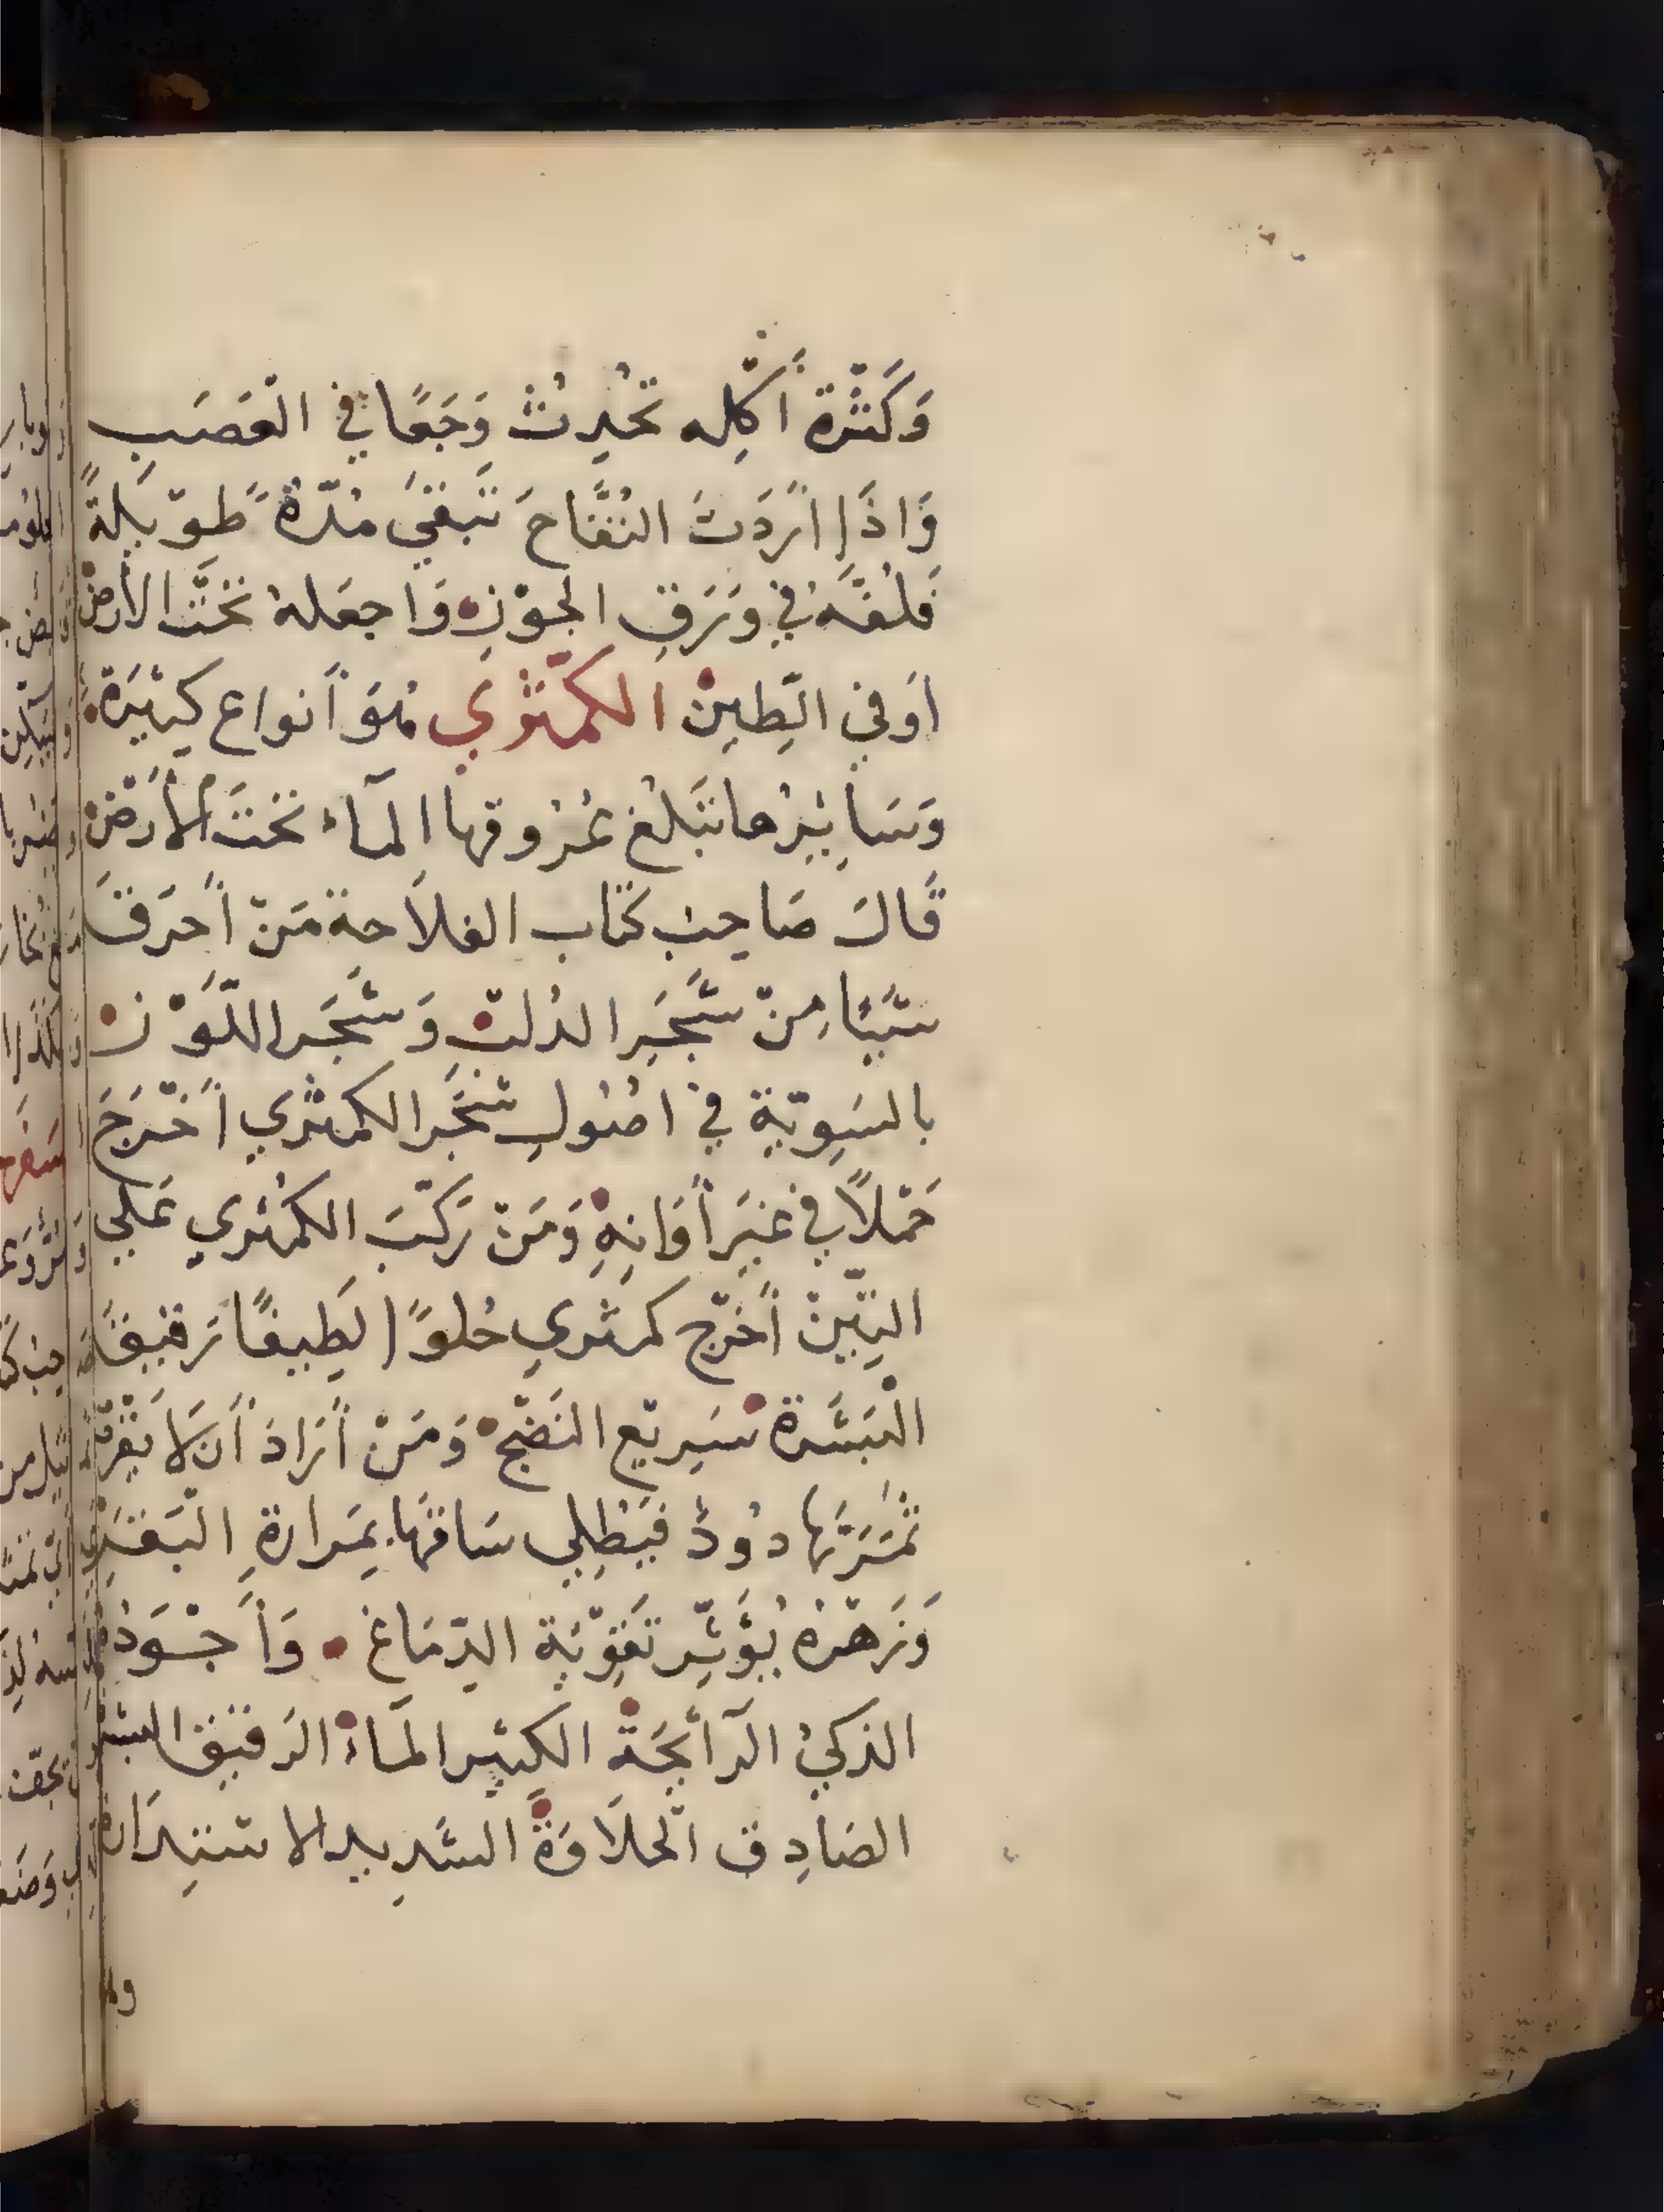 وَكَثْرَة أَكْلِه تُحْدِثُ وَجَعًا في العَصَب
وَاذَا ارَدْتَ التُفَّاحَ تَبقَي مُدّةً طَوِيلةً
فَلُفَّهُ في وَرَقِ الجَوْزِ وَاجعَلهُ تَحْتَ الأَرْض
اوَفي الطِين الكمّثري هُوَ أنواع كِثيرَة
وَسَايِرُها تبَلُغ عُرُوقها المآء تَحْتَ الأَرْض
قَالَ صَاحِبُ كتاب الفلاَحة مَنْ أَحرَقَ
شَيْئا مِنْ شَجَر الدُلب وَشَجَر اللَّوْز
بالسَوِيّة في اصُولِ شَجَر الكمثري أَخْرَجَ
حَمْلاً في غيَر أَوَانِهِ وَمَنْ رَكّبَ الكمثري عَلي
التِينْ أَخرَج كمثري حُلوًا لَطِيفًا رَقيقَ
الْبَشَرة سَريع النَضْج وَمَنْ أَرَادَ أَن لاَ يَقْرَبَ
ثَمَرَتَها دُودٌ فَيَطْلِي سَاقَها بِمَرارةِ البَقَر
وَزَهْرُهُ يُؤَثِّر تَقوِيَة الدِمَاغ وَأَجْوَدُهُ
الذكيُ الرآئِحَة الكثير المَاء الرَقيق البشرة
الصَادِق الحَلاَوَة الشَدِيد الاستِدَارة